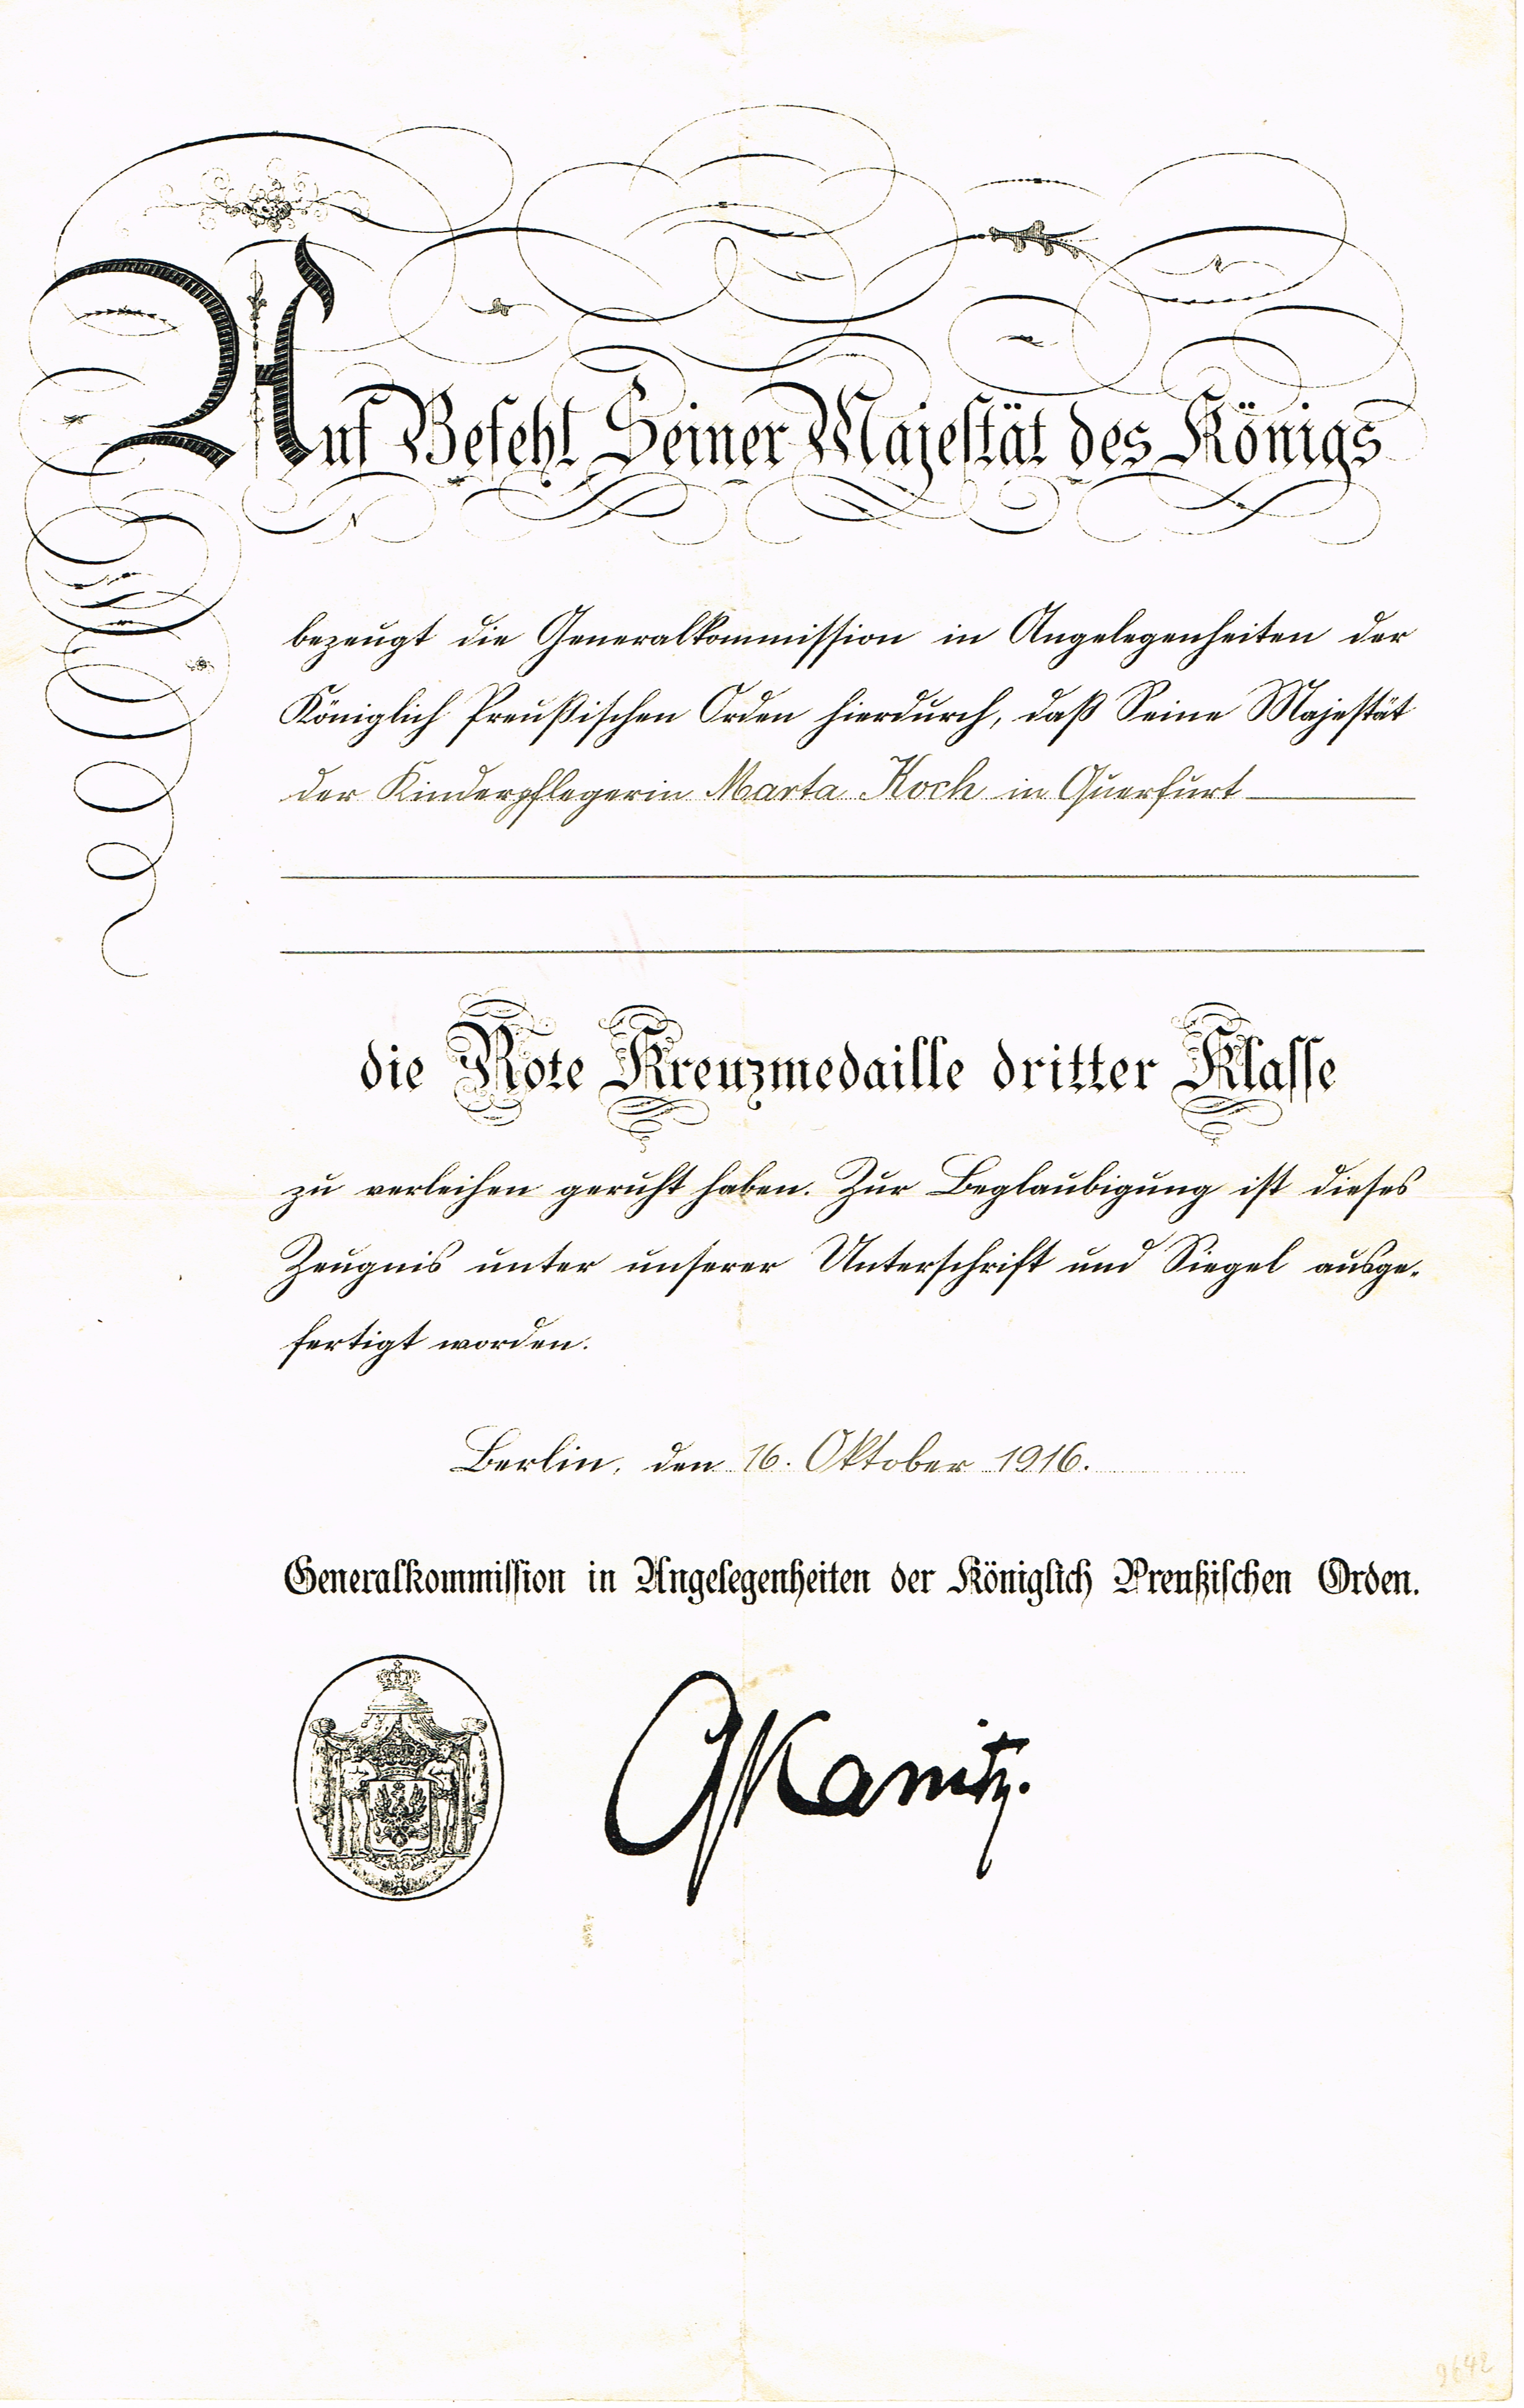 Auf Befehl Seiner Majestät des Königs
bezeugt die Generalkommission in Angelegenheiten der
Königlich Preußischen Orden hierdurch, daß Seine Majestät
der Kinderpflegerin Marta Koch in Querfurt
die Rote Kreuzmedaille dritter Klasse
zu verleihen geruht haben. Zur Beglaubigung ist dieses
Zeugnis unter unserer Unterschrift und Siegel ausge-
fertigt worden.
Berlin, den 16. Oktober 1916.
Generalkommission in Angelegenheiten der Königlich Preußischen Orden.
Kanitz.
9642